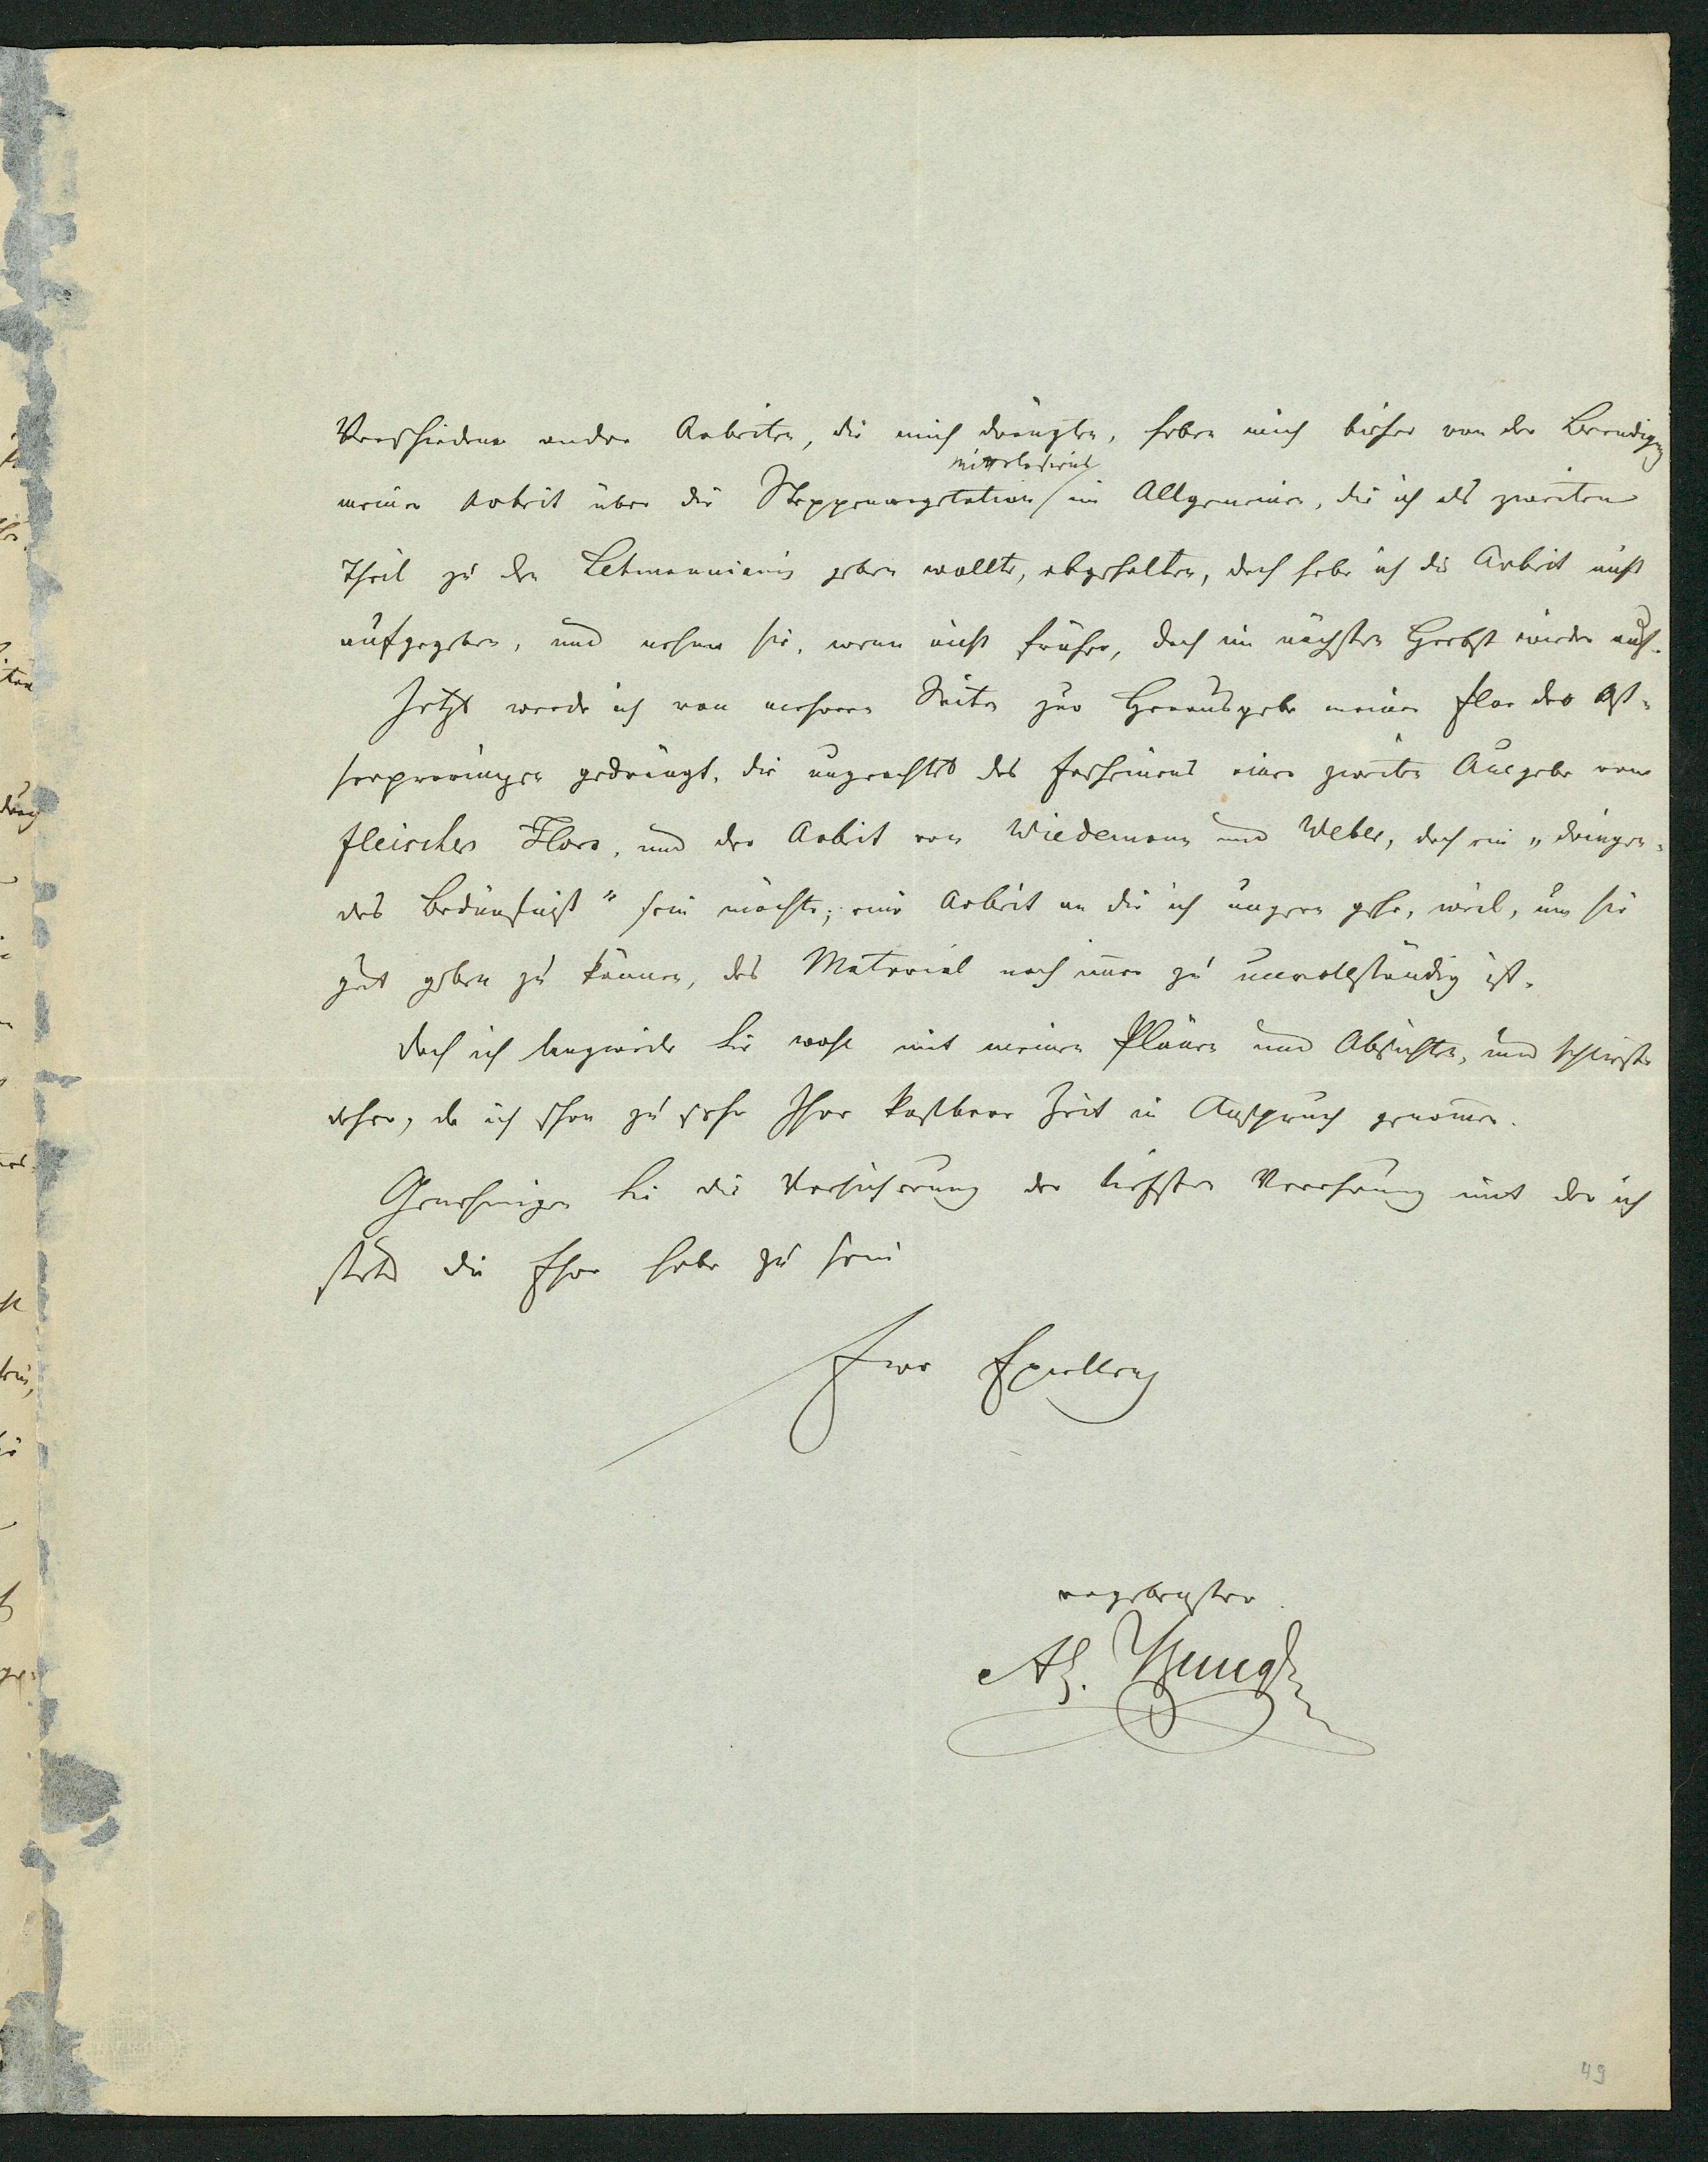 Verschiedene andre Arbeiten, die mich drängten, haben mich bisher von der Beendigung
mittelasiens
meiner Arbeit über die Steppenvegetation im Allgemeinen, die ich als zweiten
Theil zu den Lehmannianis geben wollte, abgehalten, doch habe ich die Arbeit nicht
aufgegeben, und nehme sie, wenn nicht früher, doch im nächsten Herbst wieder auf.
Jetzt werde ich von mehreren Seiten zur Herausgabe meiner Flor der Ost-
seeprovinzen gedrängt, die ungeachtet des Erscheinens einer zweiten Ausgabe von
Fleischers Flora, und der Arbeit von Wiedemann und Weber, doch ein „dringen-
des Bedürfniß" sein möchte; eine Arbeit an die ich ungern gehe, weil, um sie
gut geben zu können, das Material noch immer zu unvollständig ist.
Doch ich langweile Sie wohl mit meinen Plänen und Absichten, und schließe
daher, da ich schon zu sehr Ihre kostbare Zeit in Anspruch genommen.
Genehmigen Sie die Versicherung der tiefsten Verehrung mit der ich
stets die Ehre habe zu sein
Ewr Excellenz
ergebenster
Al. Bunge
49